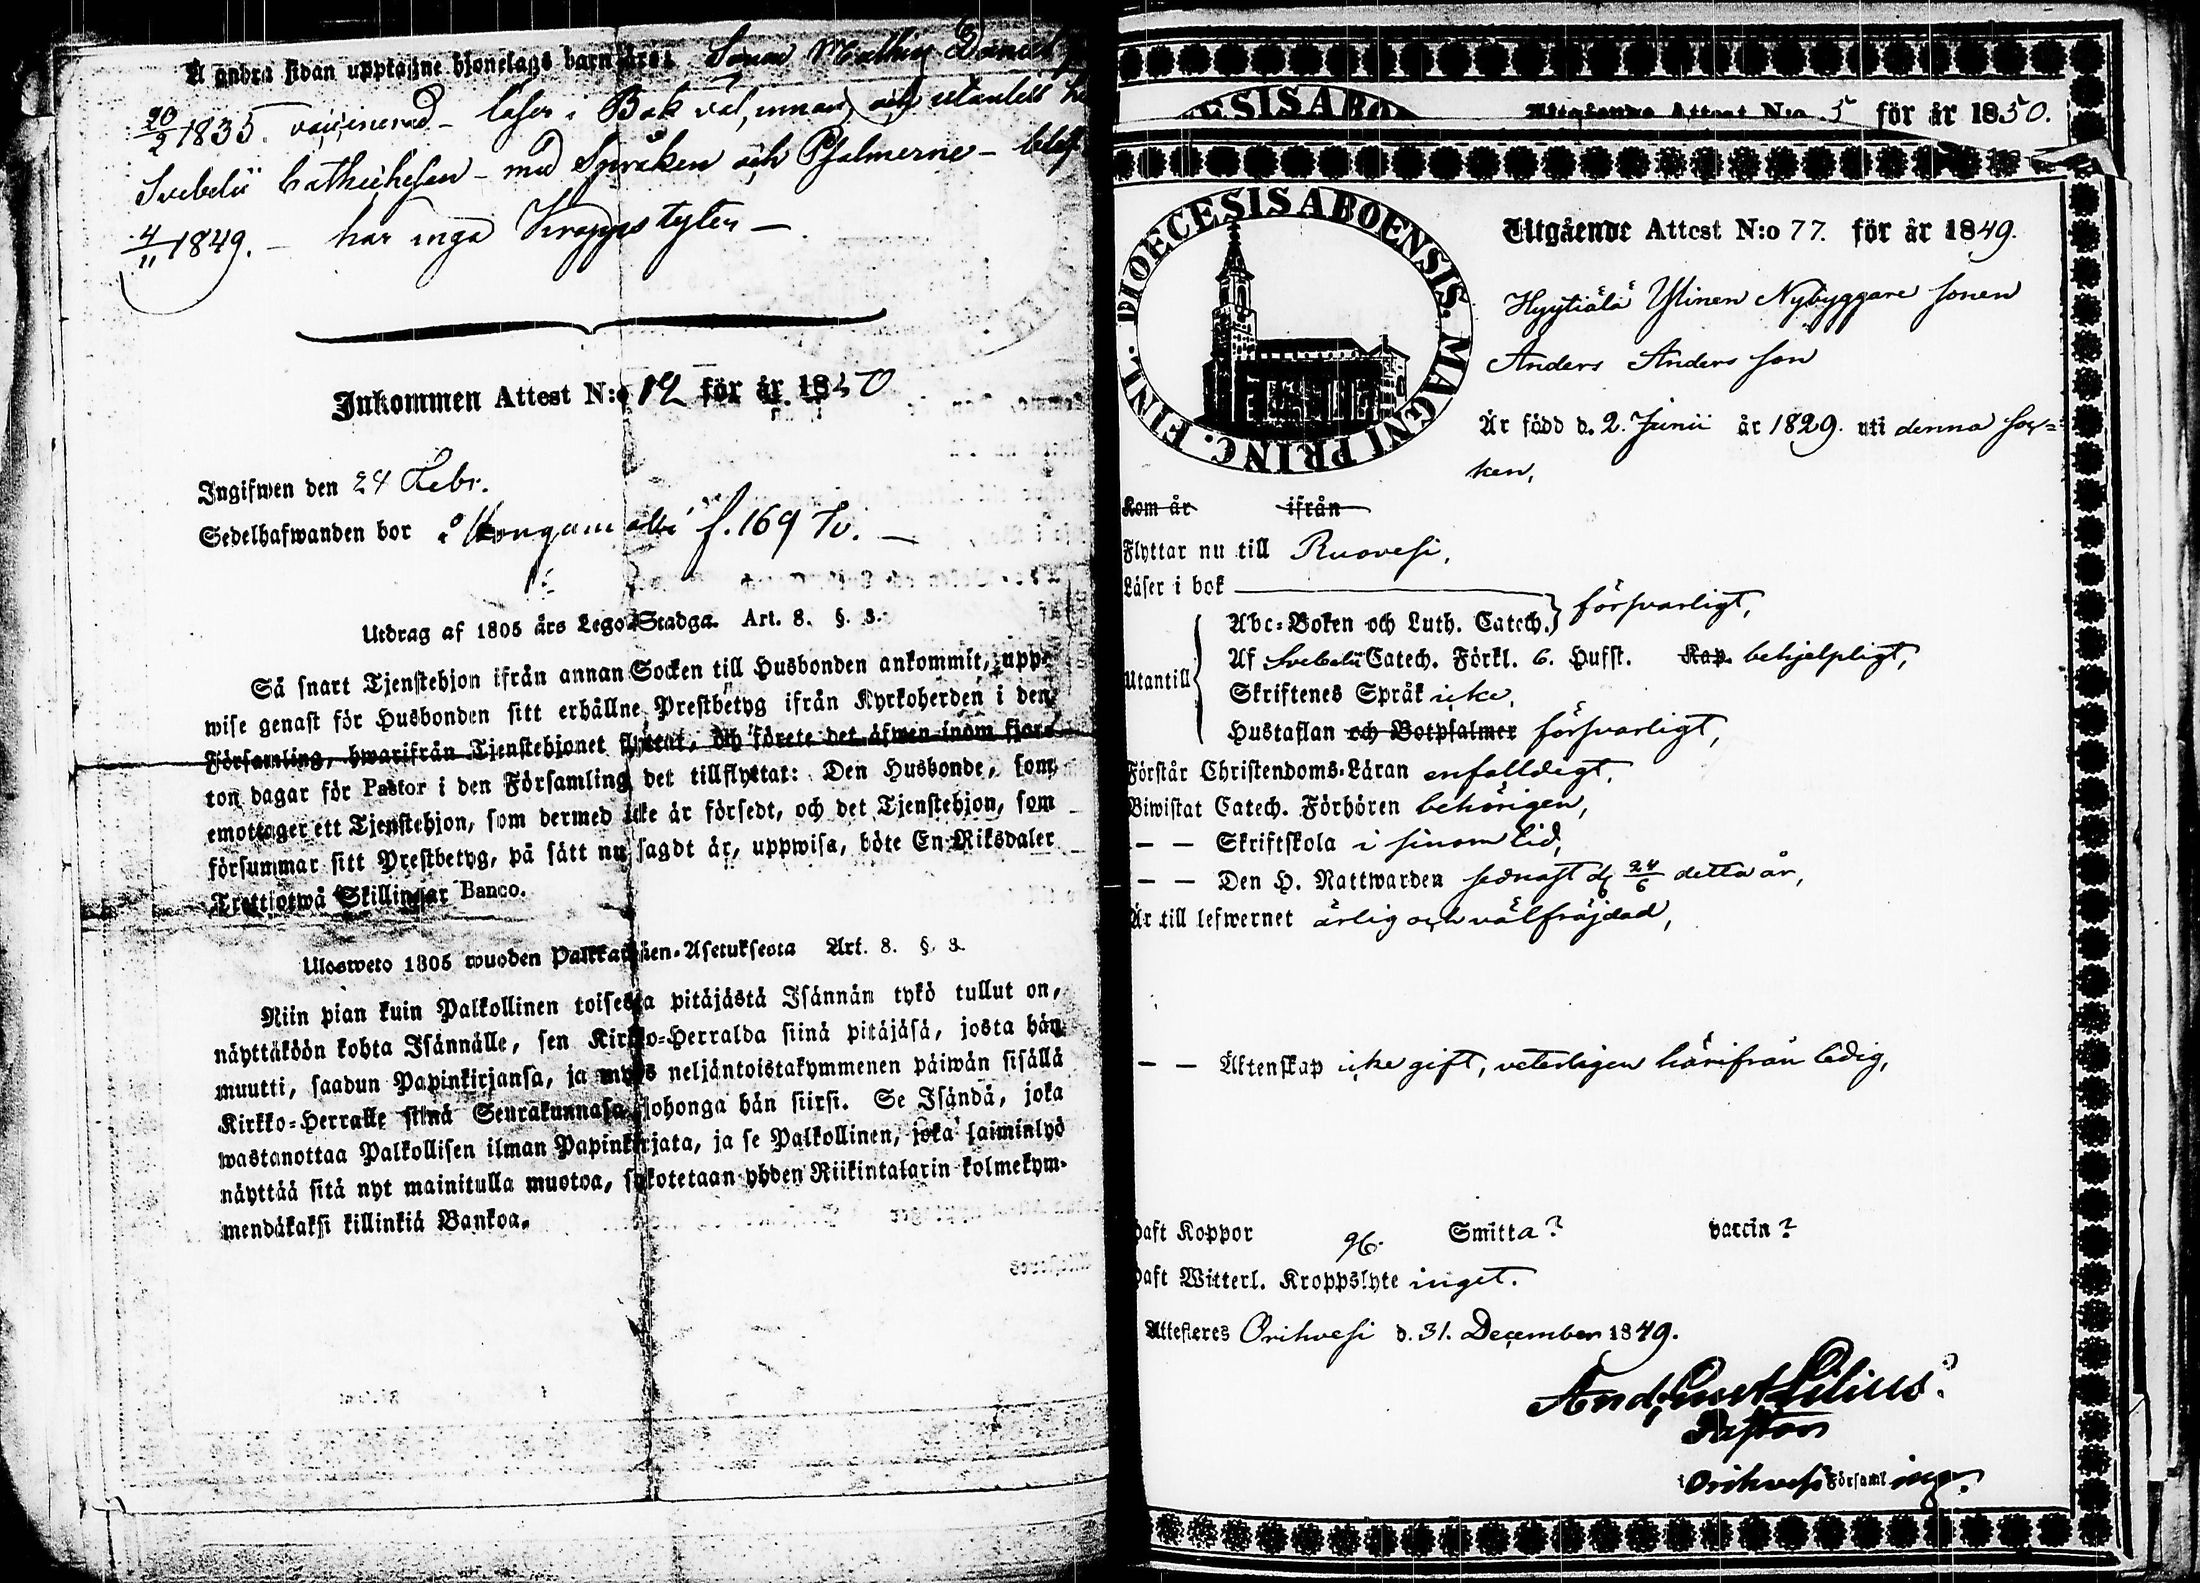 Å andra sidan upptagne hjonelags barn äro: Sonen Mathias Daniel
20/2 1835. vaccinerad - läser i Bok väl, innan och utanlexs
Svebelii Cathechesen - med Språken och Psalmerne -
4/11 1849. - har inga Kroppslyten -
Inkommen Attest N:o 12 för år 1850
Ingifwen den 24 Febr.
Sedelhafwanden bor i f. 169 Tv.
Utdrag af 1805 års Lego-Stadga. Art. 8. §. 3.
Så snart Tjenstehjon ifrån annan Socken till Husbonden ankommit, upp-
wise genast för Husbonden sitt erhållne Prestbetyg ifrån Kyrkoherden i den
Församling, hwarifrån Tjenstehjonet flyttat, och förete det äfwen inom fjor-
ton dagar för Pastor i den Församling det tillflyttat: Den Husbonde, som
emottager ett Tjenstehjon, som dermed icke är försedt, och det Tjenstehjon, som
försummar sitt Prestbetyg, på sätt nu sagdt är, uppwisa, böte En Riksdaler
Trettiotwå Skillingar Banco.
Ulosweto 1805 wuoden Palkkawäen-Asetuksesta Art. 8. §. 3.
Niin pian kuin Palkollinen toisesta pitäjästä Isännän tykö tullut on,
näyttäköön kohta Isännälle, sen Kirkko-Herralda siinä pitäjäsä, josta hän
muutti, saadun Papinkirjansa, ja myös neljäntoistakymmenen päiwän sisällä
Kirkko-Herralle siinä Seurakunnasa, johonga hän siirsi. Se Isändä, joka
wastanottaa Palkollisen ilman Papinkirjata, ja se Palkollinen, joka laiminlyö
näyttää sitä nyt mainitulla muotoa, sakotetaan yhden Riikintalarin kolmekym-
mendäkaksi killinkiä Bankoa.
Utgående Attest N:o 5 för år 1850.
DIOECESIS ABOENSIS. MAGNI PRINC. FINL.
Utgående Attest N:o 77. för år 1849.
Hyytiälä Ylinen Nybyggare sonen
Anders Anders son
Är född d. 2. Junii år 1829. uti denna soc-
ken,
Kom år ifrån
Flyttar nu till Ruovesi,
Läser i bok
Abc-Boken och Luth. Catech. försvarligt,
Utantill Af Svebelii Catech. Förkl. 6. Hufst. Kap. behjelpligt,
Skriftenes Språk icke,
Hustaflan och Botpsalmer försvarligt,
Förstår Christendoms-Läran enfalldigt,
Biwistat Catech. Förhören behörigen,
— — Skriftskola i sinom tid,
— — Den H. Nattwarden sednast d. 24/6 detta år,
Är till lefwernet ärlig och välfräjdad,
— — Äktenskap icke gift, veterligen härifrån ledig,
Haft Koppor Smitta? vaccin?
Haft Witterl. Kroppslyte inget.
Attesteres Orihvesi d. 31. December 1849.
And: Gust Lilius.
Pastor
i Orihvesi Församling.